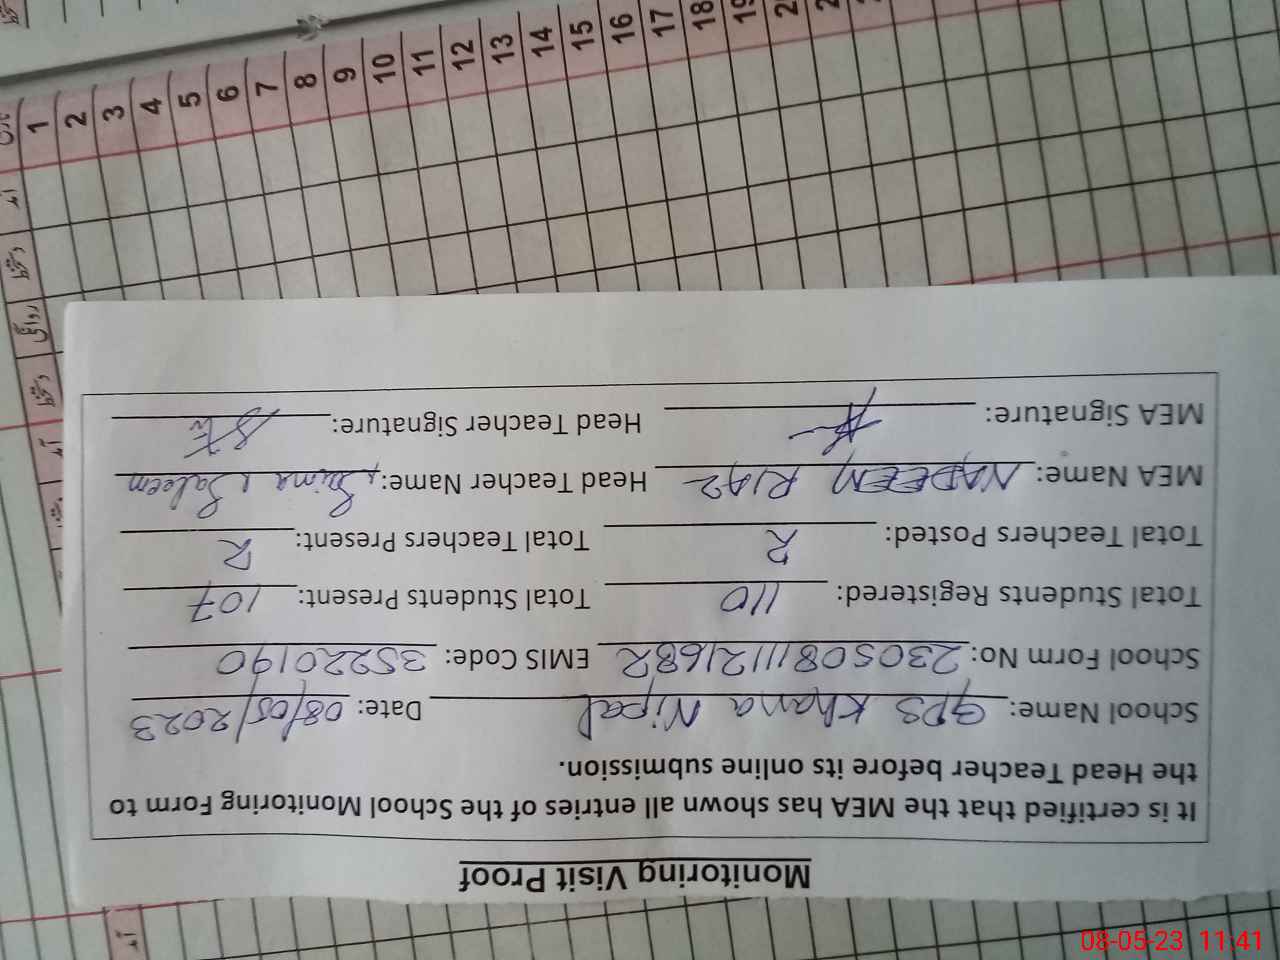 Monitoring Visit Proof
It is certified that the MEA has shown all entries of the School Monitoring Form to
the Head Teacher before its online submission.
School Name: GPS Khana Nipal Date: 08/05/2023
School Form No: 23050811121682 EMIS Code: 35220190
Total Students Registered: 110 Total Students Present: 107
Total Teachers Posted: 2 Total Teachers Present: 2
MEA Name: NADEEM RIAZ Head Teacher Name: Saima Saleem
MEA Signature: Head Teacher Signature:
1 2 3 4 5 6 7 8 9 10 11 12 13 14 15 16 17 18 19
آمد
دستخط
روانگی
دستخط
آمد
08-05-23 11:41